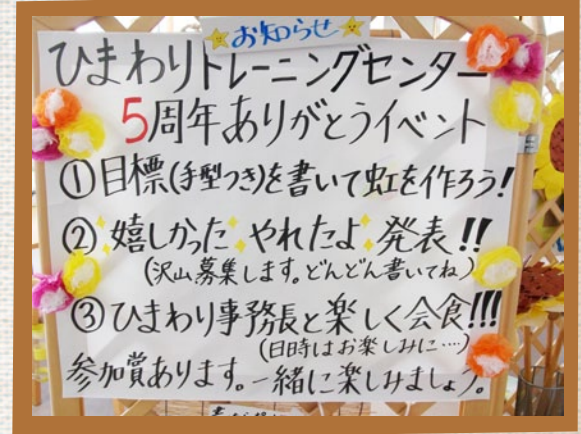 お知らせ
ひまわりトレーニングセンター
5周年ありがとうイベント
①目標(手型つき)を書いて虹を作ろう!
②嬉しかった やれたよ 発表!!
(沢山募集します。どんどん書いてね)
③ひまわり事務長と楽しく会食!!!
(日時はお楽しみに…)
参加賞あります。一緒に楽しみましょう。